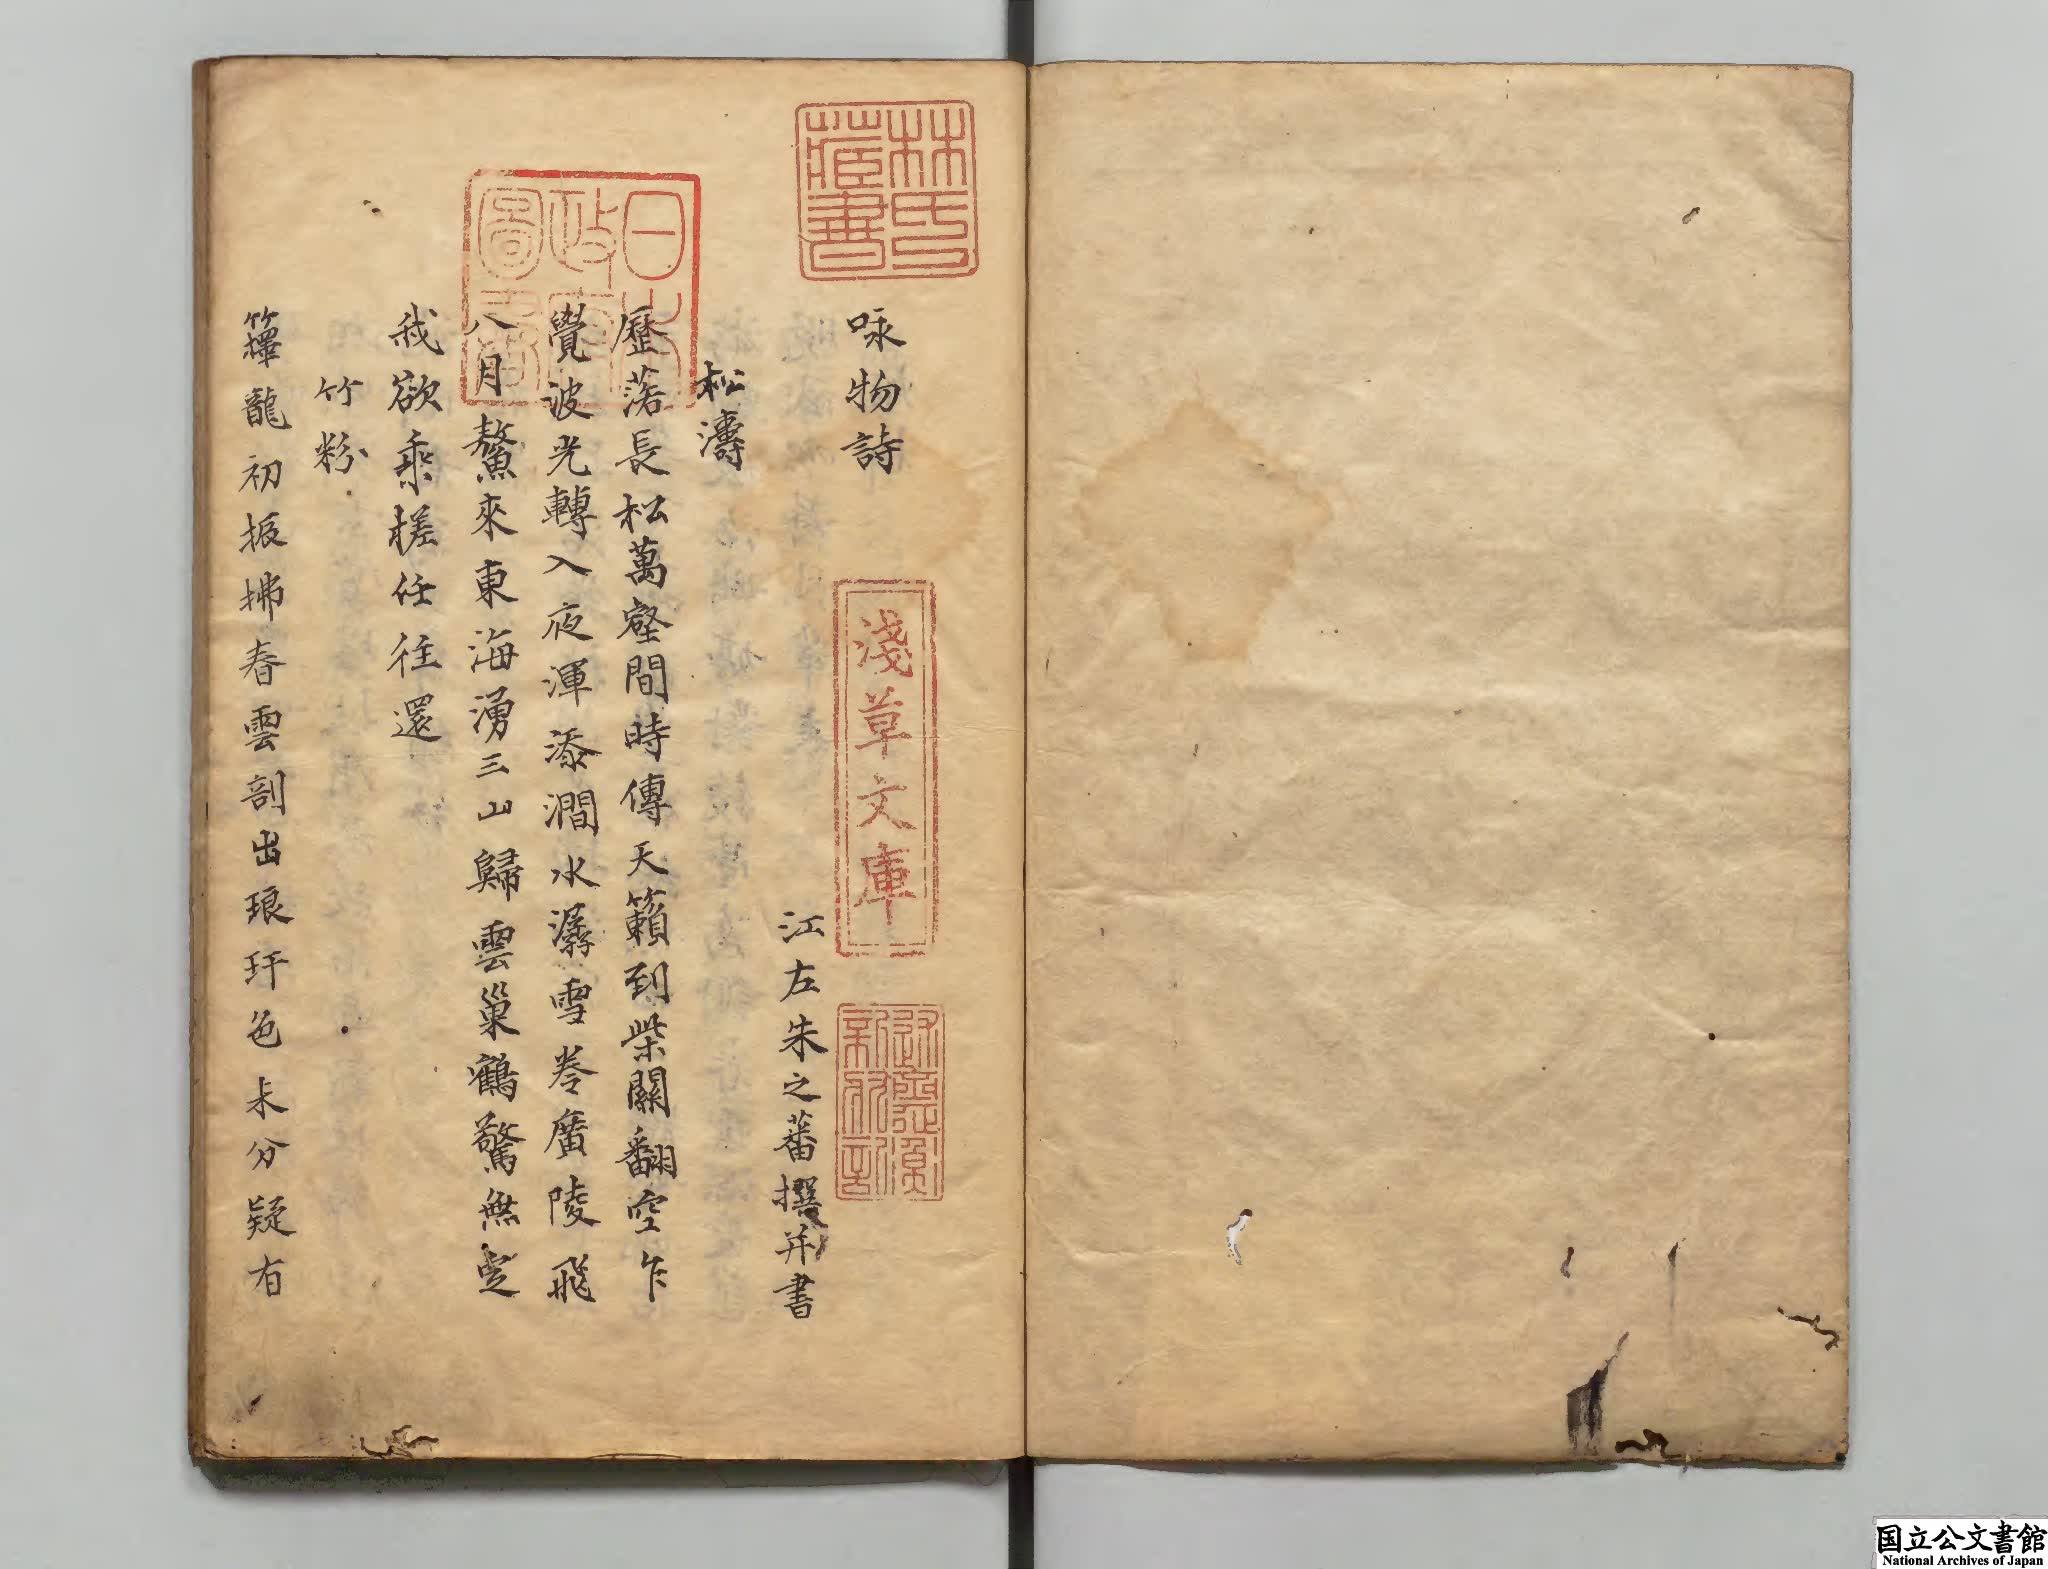 咏物詩
江左朱之蕃撰并書
松濤
歷落長松萬壑間時傳天籟到柴關翻空乍
覺波光轉入夜渾添澗水潺雪卷廣陵飛
八月鰲來東海湧三山歸雲巢鶴驚無定
我欲乘槎任往還
竹粉
籜龍初振拂春雲剖出琅玕色未分疑有
林氏藏書
日本政府圖書
淺草文庫
国立公文書館
National Archives of Japan